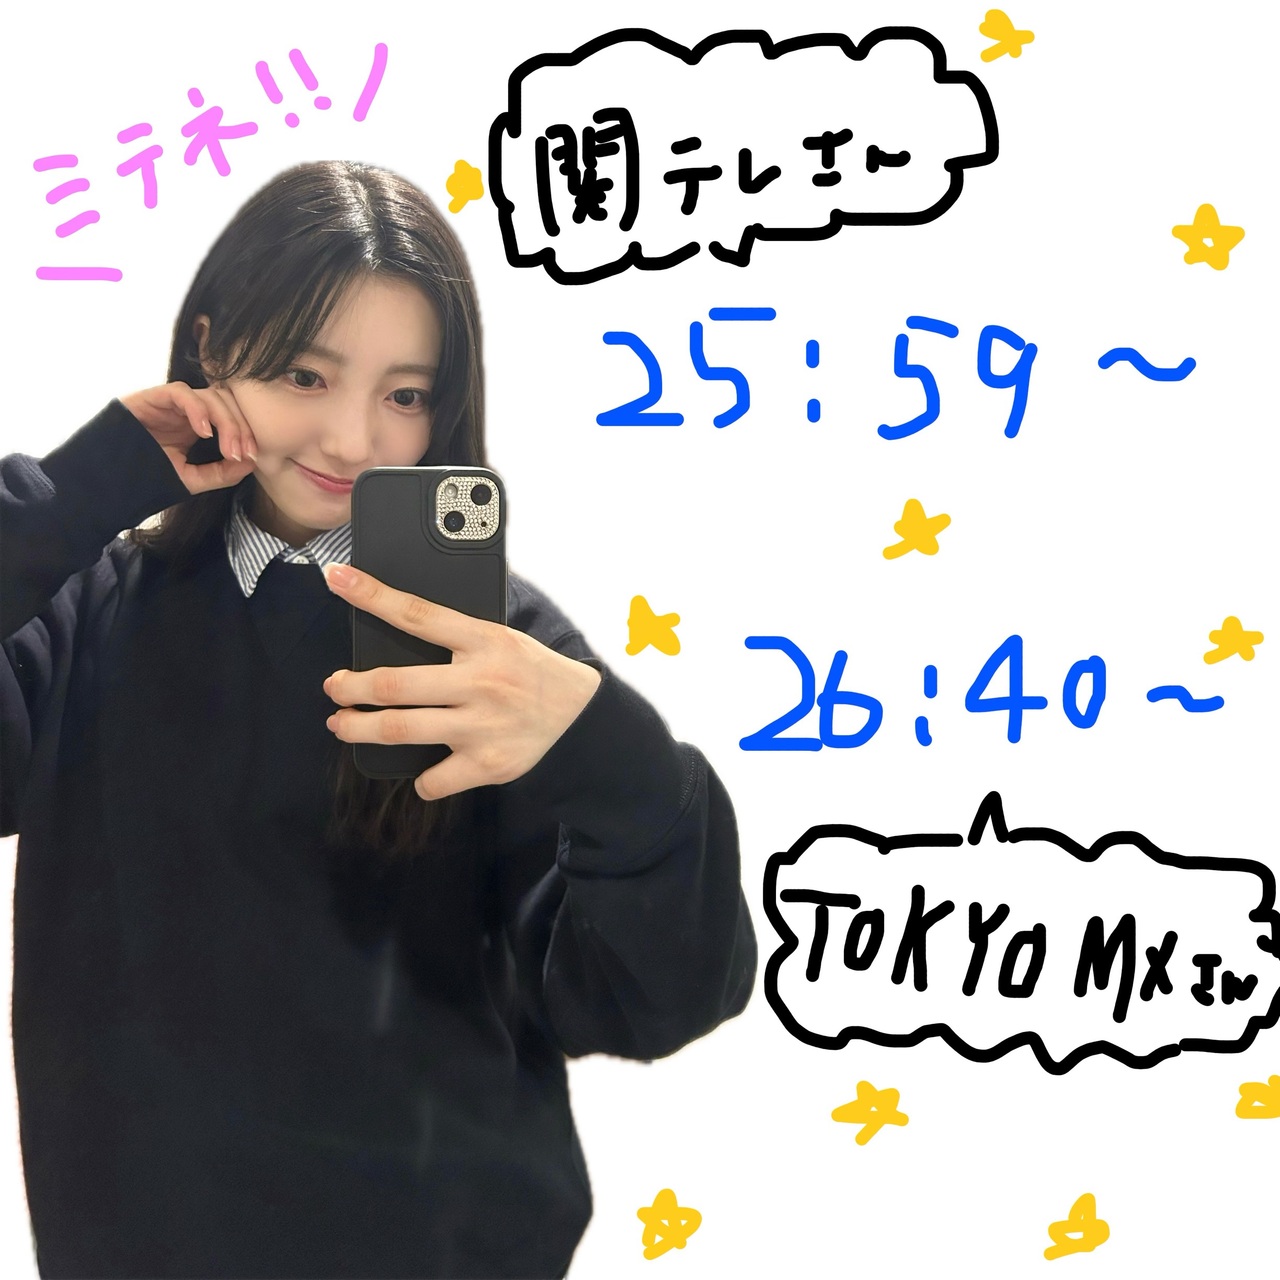 ミテネ!!
関テレさん
25:59~
26:40~
TOKYO MXさん